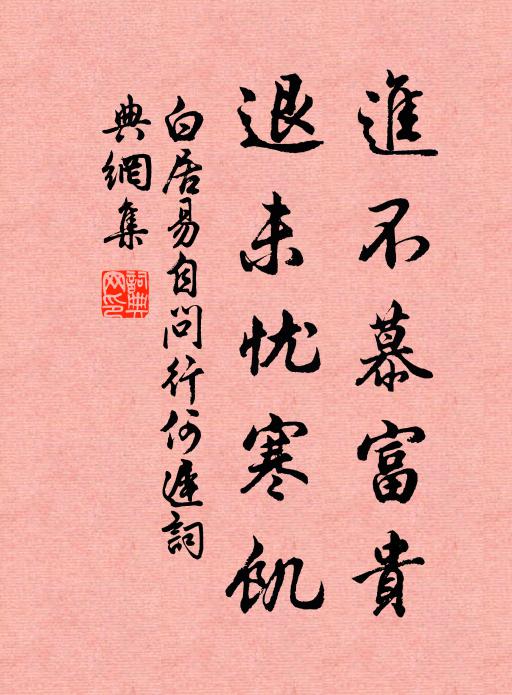 進不慕富貴
退未忧寒飢
白居易自問行何遲詞
典網集
詞典网印